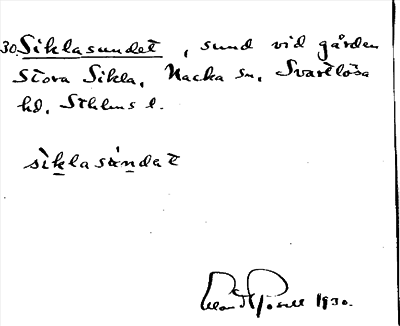 30. Siklasundet, sund vid gården
Stora Sikla, Nacka sn, Svartlösa
hd, Sthlms l.
sìklasúndat
1930.